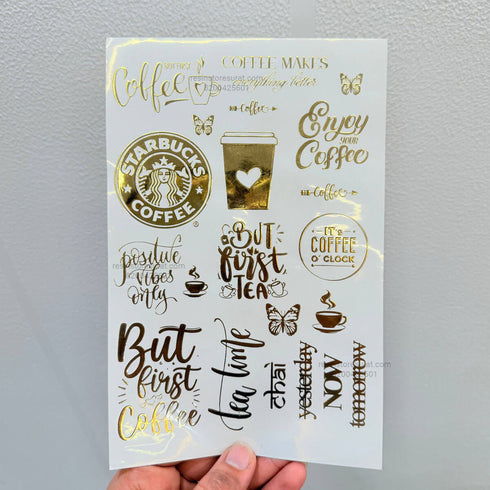 BUT FIRST
Coffee
COFFEE MAKES
everything better
resinstoresurat.com
8200425601
Coffee
Enjoy
YOUR
Coffee
Coffee
STARBUCKS
COFFEE
®
BUT
first
TEA
IT'S
COFFEE
O'CLOCK
positive
vibes
only
resinstoresurat.com
But
first
Coffee
tea time
chai
yesterday
NOW
tomorrow
resinstoresurat.com
8200425601